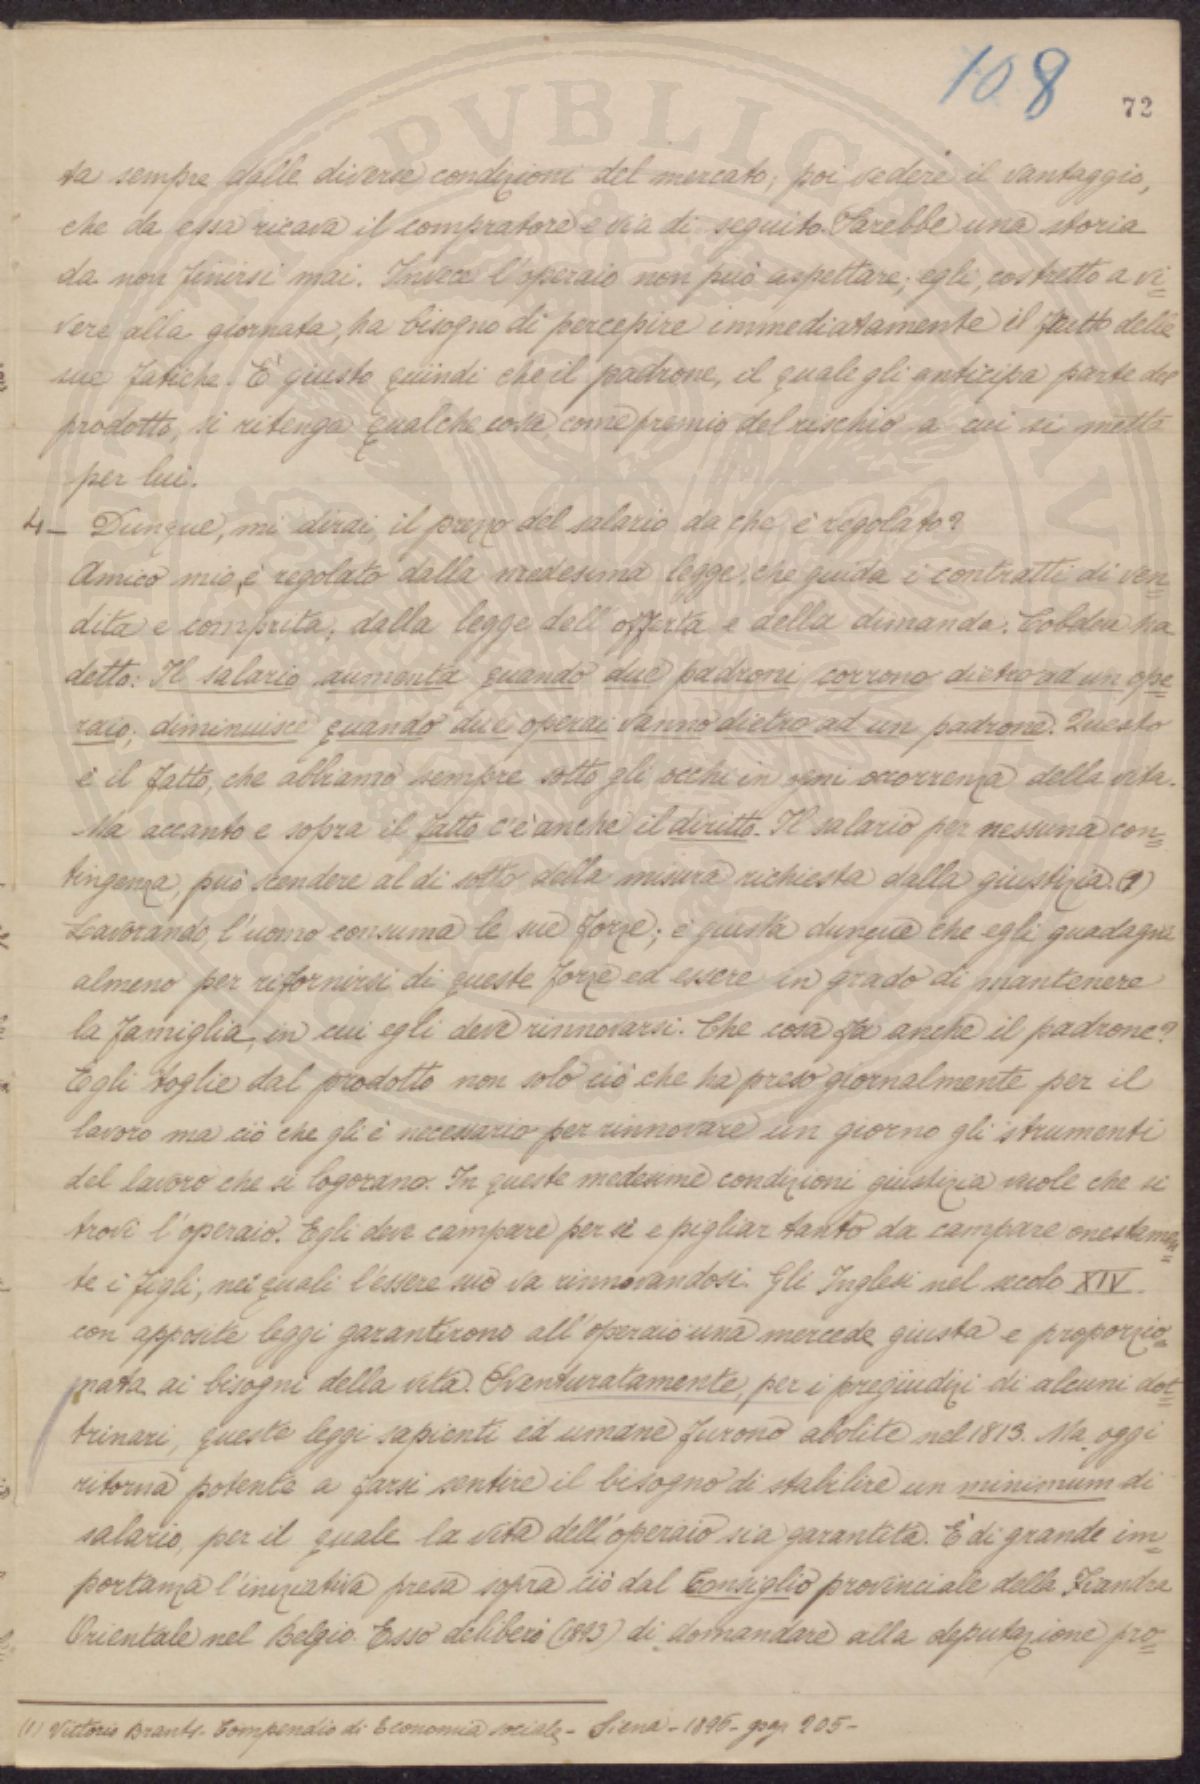 108
72
ta sempre dalle diverse condizioni del mercato; poi vedere il vantaggio,
che da essa ricava il compratore e via di seguito. Sarebbe una storia
da non finirsi mai. Invece l'operaio non può aspettare; egli, costretto a vi=
vere alla giornata, ha bisogno di percepire immediatamente il frutto delle
sue fatiche. È giusto quindi che il padrone, il quale gli anticipa parte del
prodotto, si ritenga qualche cosa come premio del rischio a cui si mette
per lui.
4- Dunque, mi dirai, il prezzo del salario da che è regolato?
Amico mio, è regolato dalla medesima legge, che guida i contratti di ven=
dita e comprita, dalla legge dell'offerta e della dimanda. Cobden ha
detto: Il salario aumenta quando due padroni corrono dietro ad un ope=
raio; diminuisce quando due operai vanno dietro ad un padrone. Questo
è il fatto, che abbiamo sempre sotto gli occhi in ogni occorrenza della vita.
Ma accanto e sopra il fatto c'è anche il diritto. Il salario per nessuna con=
tingenza, può scendere al di sotto della misura richiesta dalla giustizia. (1)
Lavorando, l'uomo consuma le sue forze; è giusta dunque che egli guadagni
almeno per rifornirsi di queste forze ed essere in grado di mantenere
la famiglia, in cui egli deve rinnovarsi. Che cosa fa anche il padrone?
Egli toglie dal prodotto non solo ciò che ha preso giornalmente per il
lavoro ma ciò che gli è necessario per rinnovare un giorno gli strumenti
del lavoro che si logorano. In queste medesime condizioni giustizia vuole che si
trovi l'operaio. Egli deve campare per sè e pigliar tanto da campare onestamen=
te i figli, nei quali l'essere suo va rinnovandosi. Gli Inglesi nel secolo XIV.
con apposite leggi garantirono all'operaio una mercede giusta e proporzio=
nata ai bisogni della vita. Sventuratamente, per i pregiudizi di alcuni dot=
trinari, queste leggi sapienti ed umane furono abolite nel 1813. Ma oggi
ritorna potente a farsi sentire il bisogno di stabilire un minimum di
salario, per il quale la vita dell'operaio sia garantita. È di grande im=
portanza l'iniziativa presa sopra ciò dal Consiglio provinciale della Fiandra
Orientale nel Belgio. Esso deliberò (1893) di domandare alla deputazione pro=
(1) Vittorio Brants - Compendio di Economia sociale - Siena - 1896 - pag. 205 -